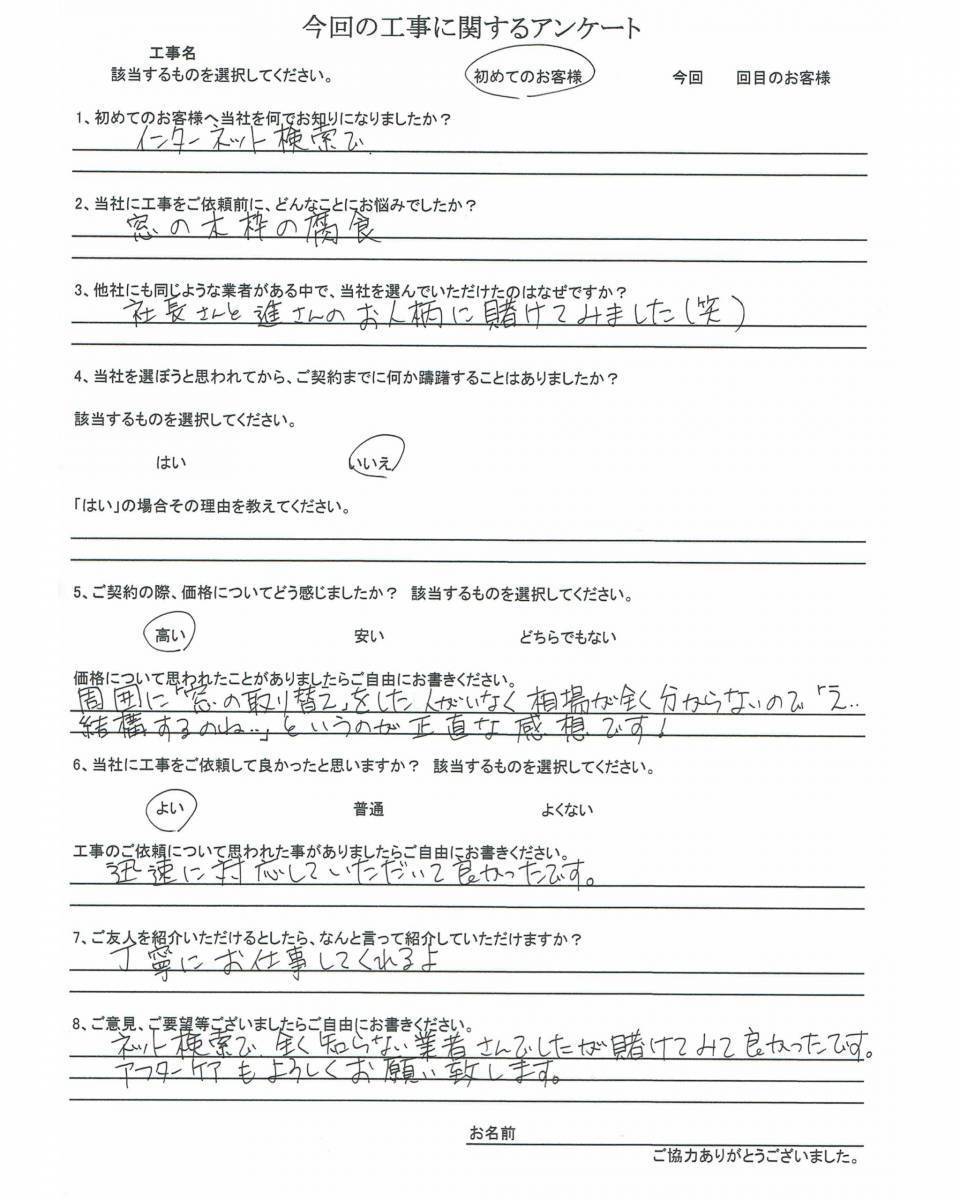 今回の工事に関するアンケート
工事名
該当するものを選択してください。 初めてのお客様 今回 回目のお客様
1、初めてのお客様へ当社を何でお知りになりましたか？
インターネット検索で
2、当社に工事をご依頼前に、どんなことにお悩みでしたか？
窓の木枠の腐食
3、他社にも同じような業者がある中で、当社を選んでいただけたのはなぜですか？
社長さんと進さんのお人柄に賭けてみました(笑)
4、当社を選ぼうと思われてから、ご契約までに何か躊躇することはありましたか？
該当するものを選択してください。
はい いいえ
「はい」の場合その理由を教えてください。
5、ご契約の際、価格についてどう感じましたか？ 該当するものを選択してください。
高い 安い どちらでもない
価格について思われたことがありましたらご自由にお書きください。
周囲に「窓の取り替え」をした人がいなく相場が全く分からないので「え‥
結構するのね‥」というのが正直な感想です！
6、当社に工事をご依頼して良かったと思いますか？ 該当するものを選択してください。
よい 普通 よくない
工事のご依頼について思われた事がありましたらご自由にお書きください。
迅速に対応していただいて良かったです。
7、ご友人を紹介いただけるとしたら、なんと言って紹介していただけますか？
丁寧にお仕事してくれるよ
8、ご意見、ご要望等ございましたらご自由にお書きください。
ネット検索で、全く知らない業者さんでしたが賭けてみて良かったです。
アフターケアもよろしくお願い致します。
お名前
ご協力ありがとうございました。